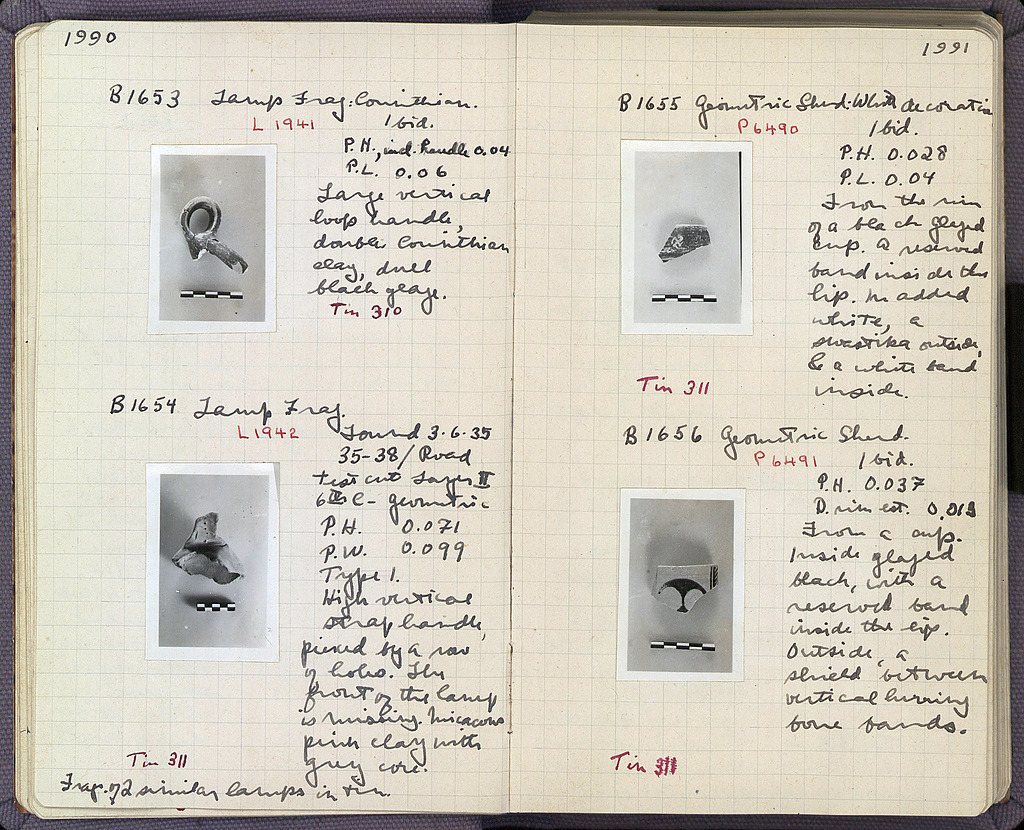 1990
B1653 Lamp Frag: Corinthian.
L 1941 Ibid.
P.H., incl. handle 0.04
P.L. 0.06
Large vertical
loop handle,
double Corinthian
clay, dull
black glaze.
Tin 310
B1654 Lamp Frag.
L1942 Found 3.6.35
35-38/Road
test cut Layer II
6th C- geometric
P.H. 0.071
P.W. 0.099
Type I.
High vertical
strap handle,
pierced by a row
of holes. The
front of the lamp
is missing. Micaceous
pink clay with
grey core.
Tin 311
Frag. of 2 similar lamps in tin.
1991
B1655 Geometric Sherd: White decoration
P6490 Ibid.
P.H. 0.028
P.L. 0.04
From the rim
of a black glazed
cup. A reserved
band inside the
lip. In added
white, a
swastika outside,
& a white band
inside.
Tin 311
B1656 Geometric Sherd.
P6491 Ibid.
P.H. 0.037
D. rim est.
From a cup.
Inside glazed
black, with a
reserved band
inside the lip.
Outside, a
shield between
vertical herring
bone bands.
Tin 311